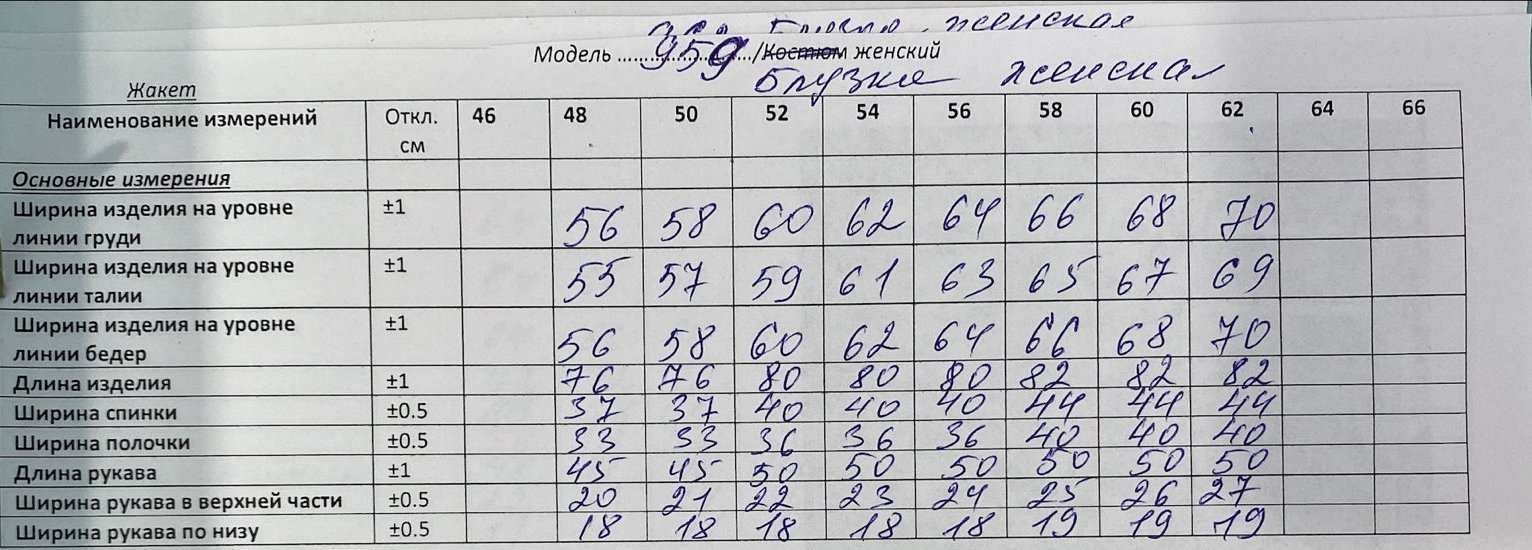 женская
Модель ...959.../Костюм женский
Блузка женская
Жакет
Наименование измерений Откл. см 46 48 50 52 54 56 58 60 62 64 66
Основные измерения
Ширина изделия на уровне линии груди ±1 56 58 60 62 64 66 68 70
Ширина изделия на уровне линии талии ±1 55 57 59 61 63 65 67 69
Ширина изделия на уровне линии бедер ±1 56 58 60 62 64 66 68 70
Длина изделия ±1 76 76 80 80 80 82 82 82
Ширина спинки ±0.5 37 37 40 40 40 44 44 44
Ширина полочки ±0.5 33 33 36 36 36 40 40 40
Длина рукава ±1 45 45 50 50 50 50 50 50
Ширина рукава в верхней части ±0.5 20 21 22 23 24 25 26 27
Ширина рукава по низу ±0.5 18 18 18 18 18 19 19 19